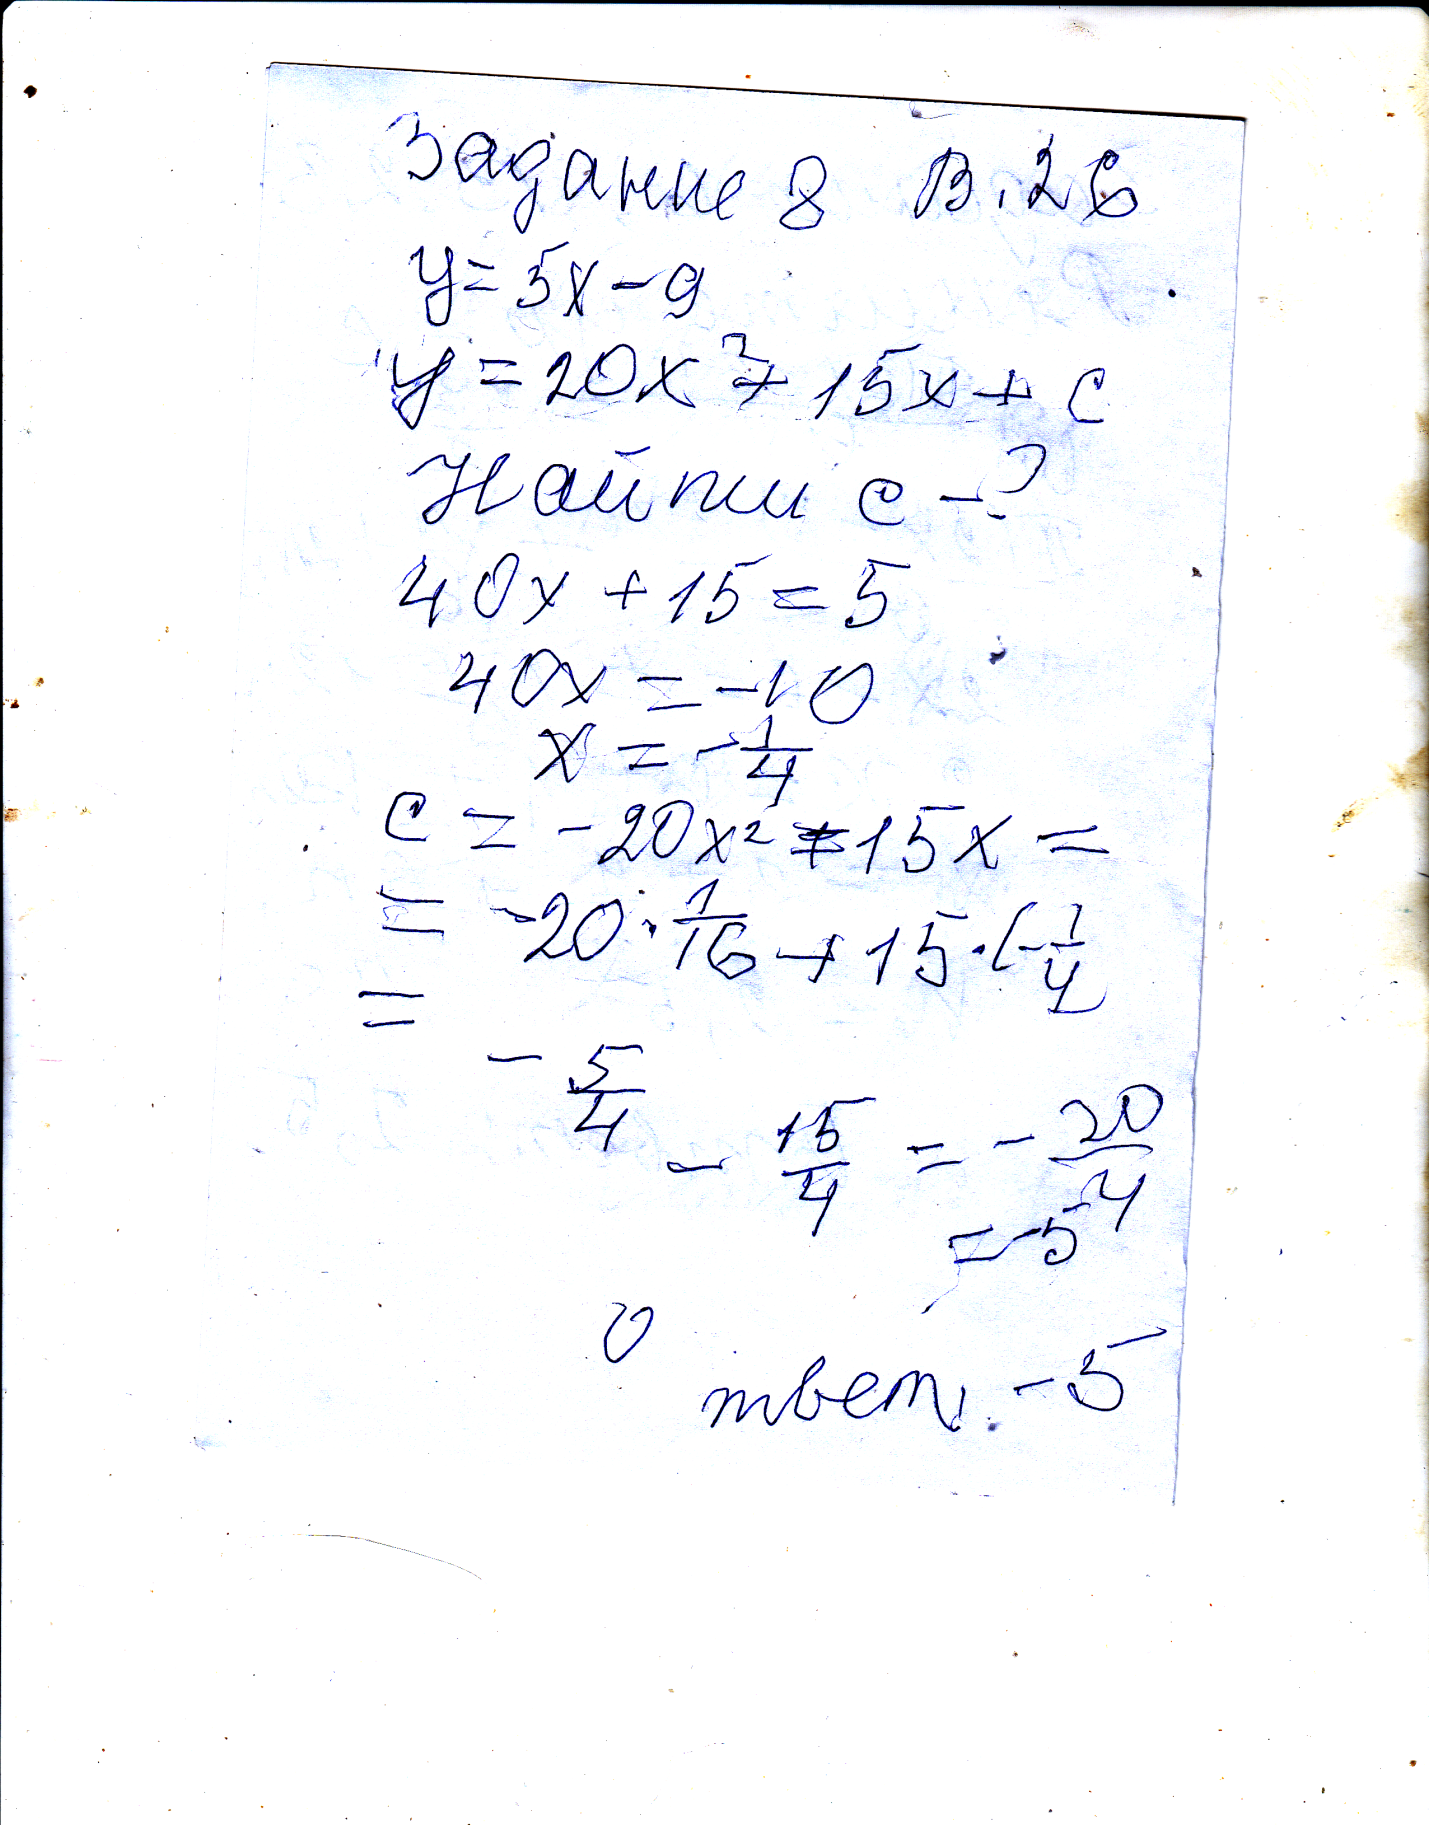 Задание 8 В.26
y = 5x - 9
y = 20x² + 15x + c
Найти c - ?
40x + 15 = 5
40x = -10
x = -1/4
c = -20x² + 15x =
= -20 · 1/16 + 15 · (-1/4
=
- 5/4 - 15/4 = - 20/4
= -5
Ответ: -5